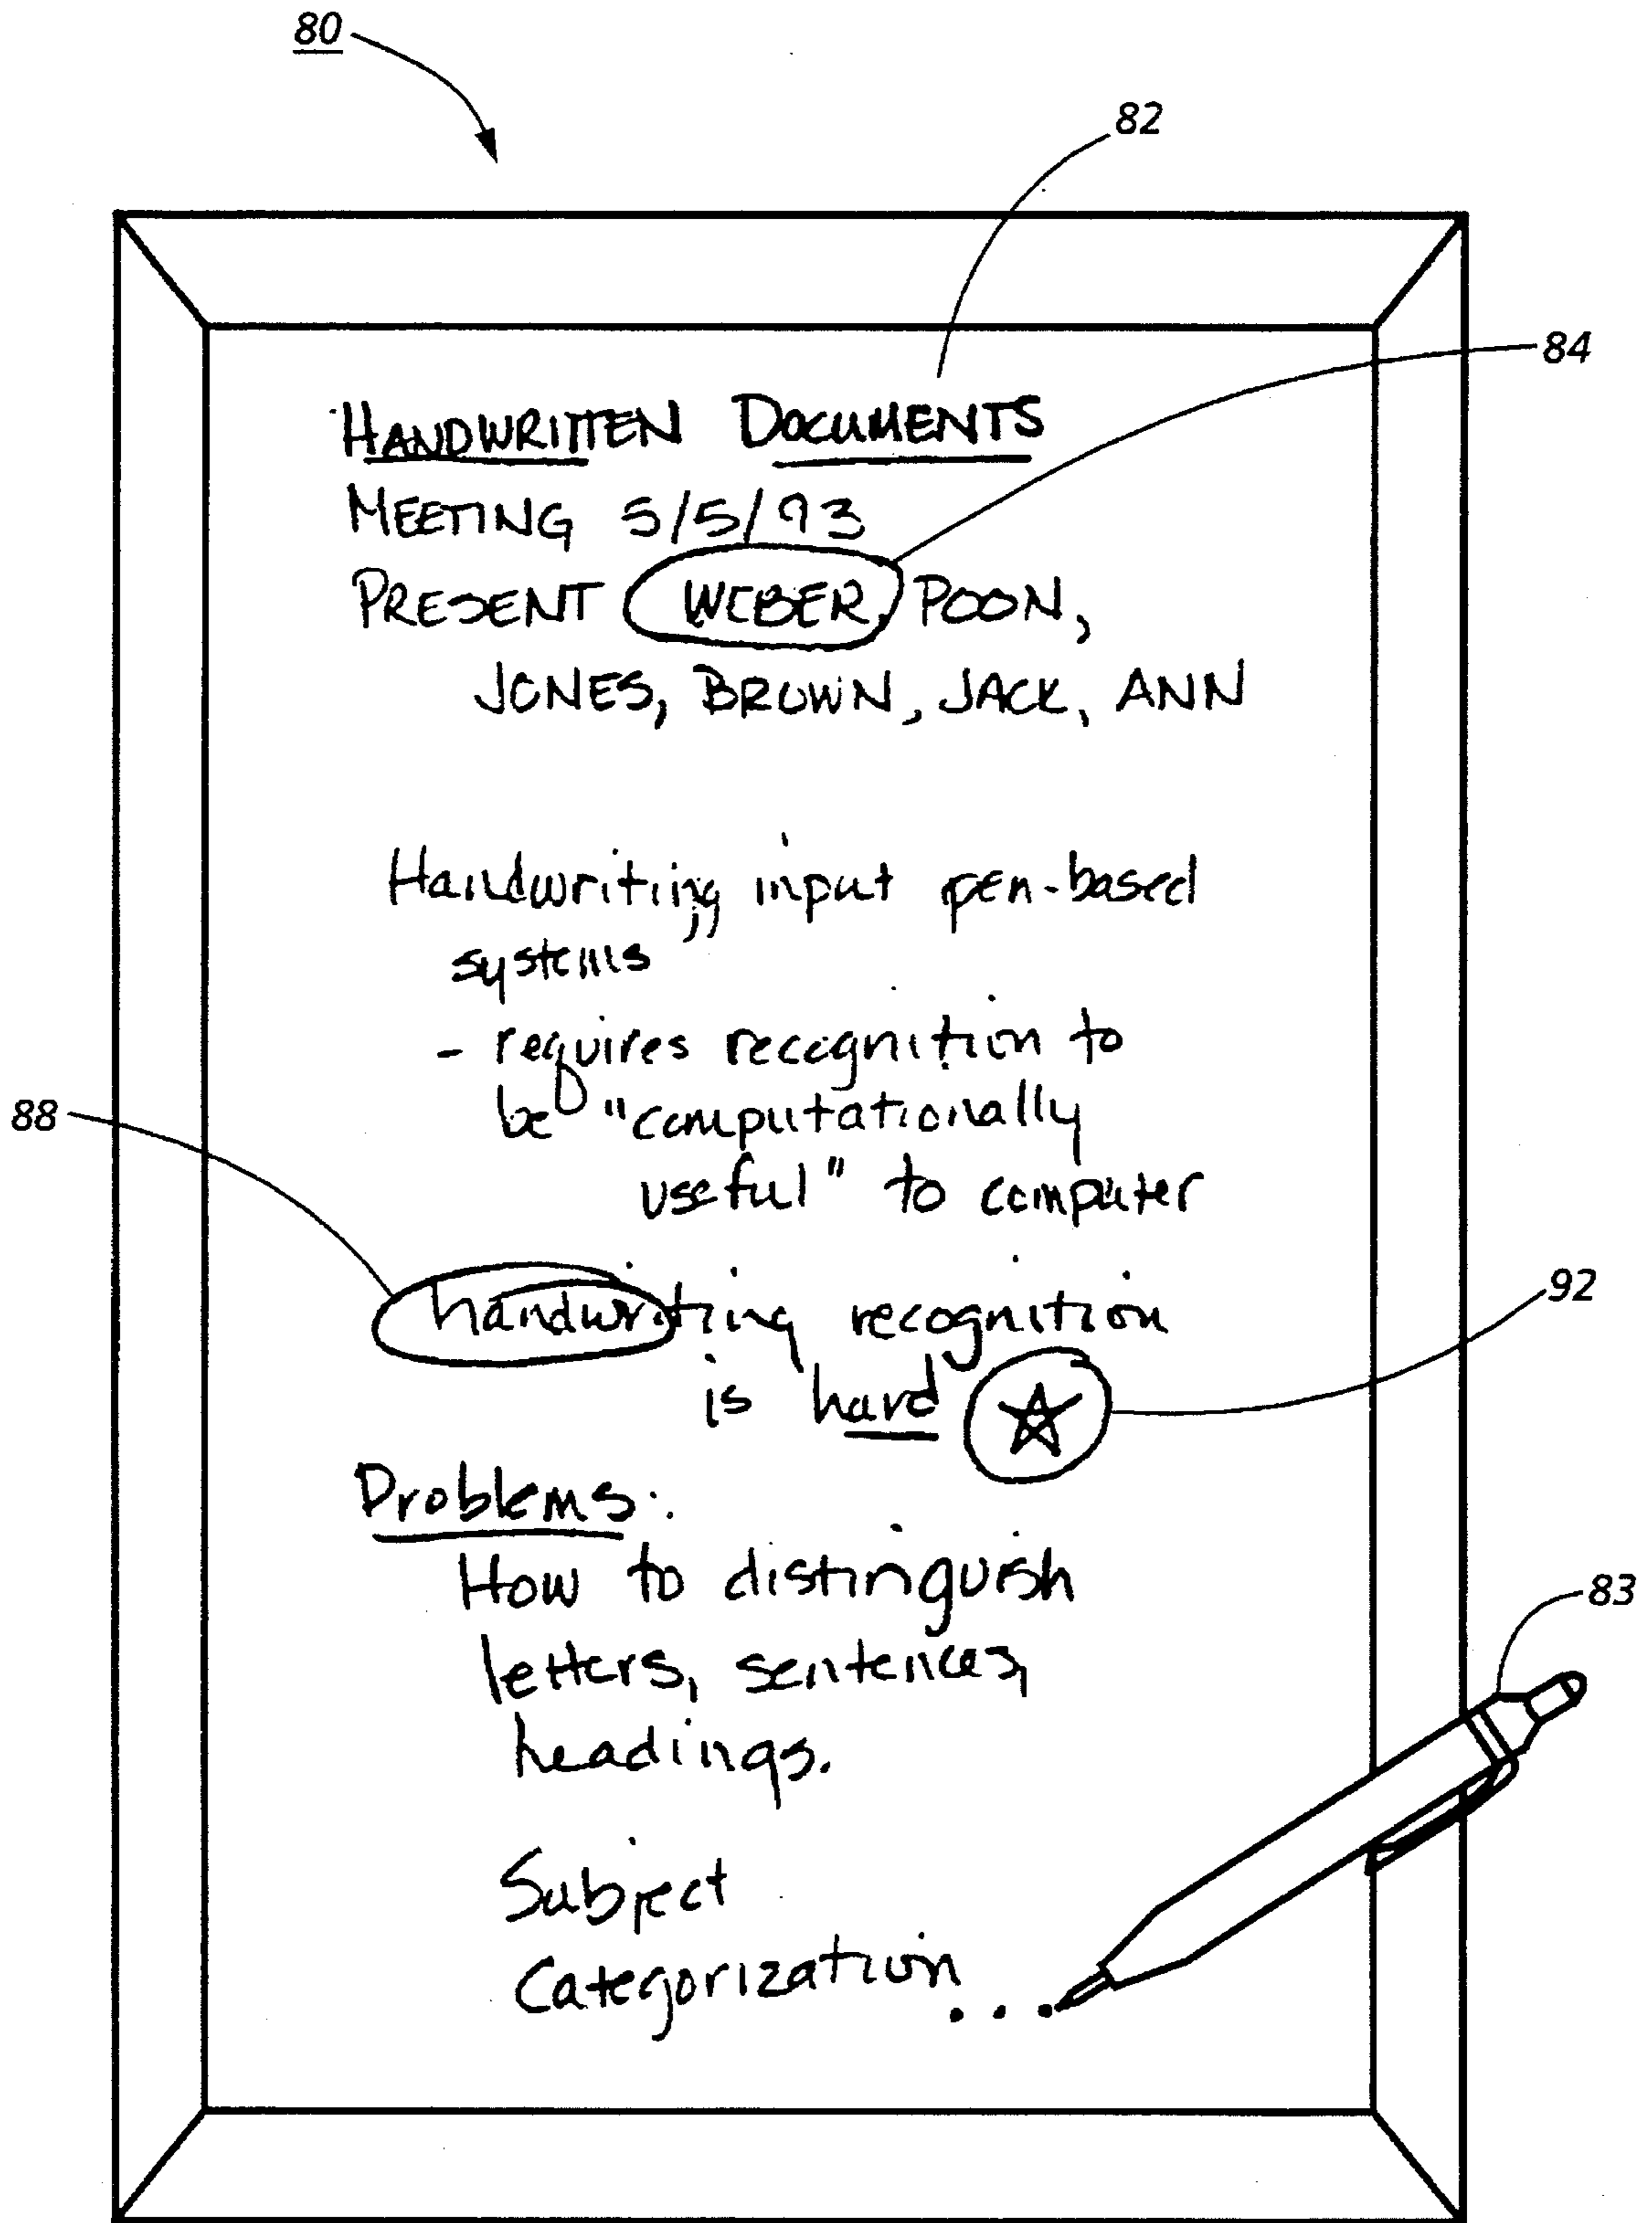 80
82
84
HANDWRITTEN DOCUMENTS
MEETING 5/5/93
PRESENT WEBER, POON,
JONES, BROWN, JACK, ANN
Handwriting input pen-based
systems
- requires recognition to
88
be "computationally
useful" to computer
handwriting recognition
92
is hard
Problems:
How to distinguish
83
letters, sentences,
headings.
Subject
Categorization...